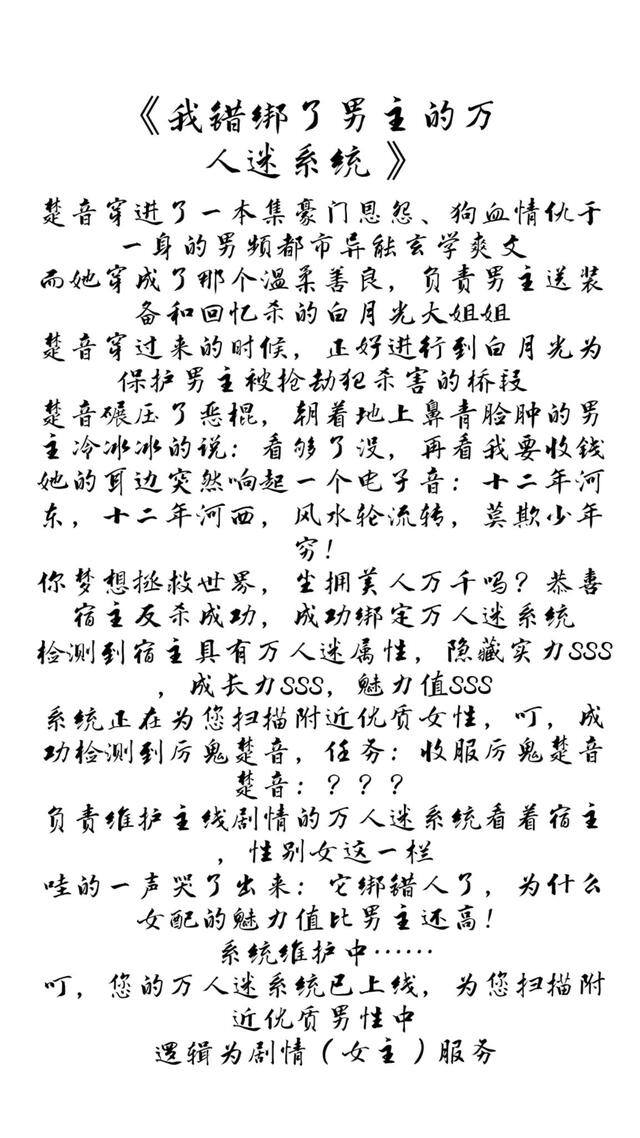 《我错绑了男主的万
人迷系统》
楚音穿进了一本集豪门恩怨、狗血情仇于
一身的男频都市异能玄学爽文
而她穿成了那个温柔善良，负责男主送装
备和回忆杀的白月光大姐姐
楚音穿过来的时候，正好进行到白月光为
保护男主被抢劫犯杀害的桥段
楚音碾压了恶棍，朝着地上鼻青脸肿的男
主冷冰冰的说：看够了没，再看我要收钱
她的耳边突然响起一个电子音：十二年河
东，十二年河西，风水轮流转，莫欺少年
穷！
你梦想拯救世界，坐拥美人万千吗？恭喜
宿主反杀成功，成功绑定万人迷系统
检测到宿主具有万人迷属性，隐藏实力SSS
，成长力SSS，魅力值SSS
系统正在为您扫描附近优质女性，叮，成
功检测到厉鬼楚音，任务：收服厉鬼楚音
楚音：？？？
负责维护主线剧情的万人迷系统看着宿主
，性别女这一栏
哇的一声哭了出来：它绑错人了，为什么
女配的魅力值比男主还高！
系统维护中……
叮，您的万人迷系统已上线，为您扫描附
近优质男性中
逻辑为剧情（女主）服务